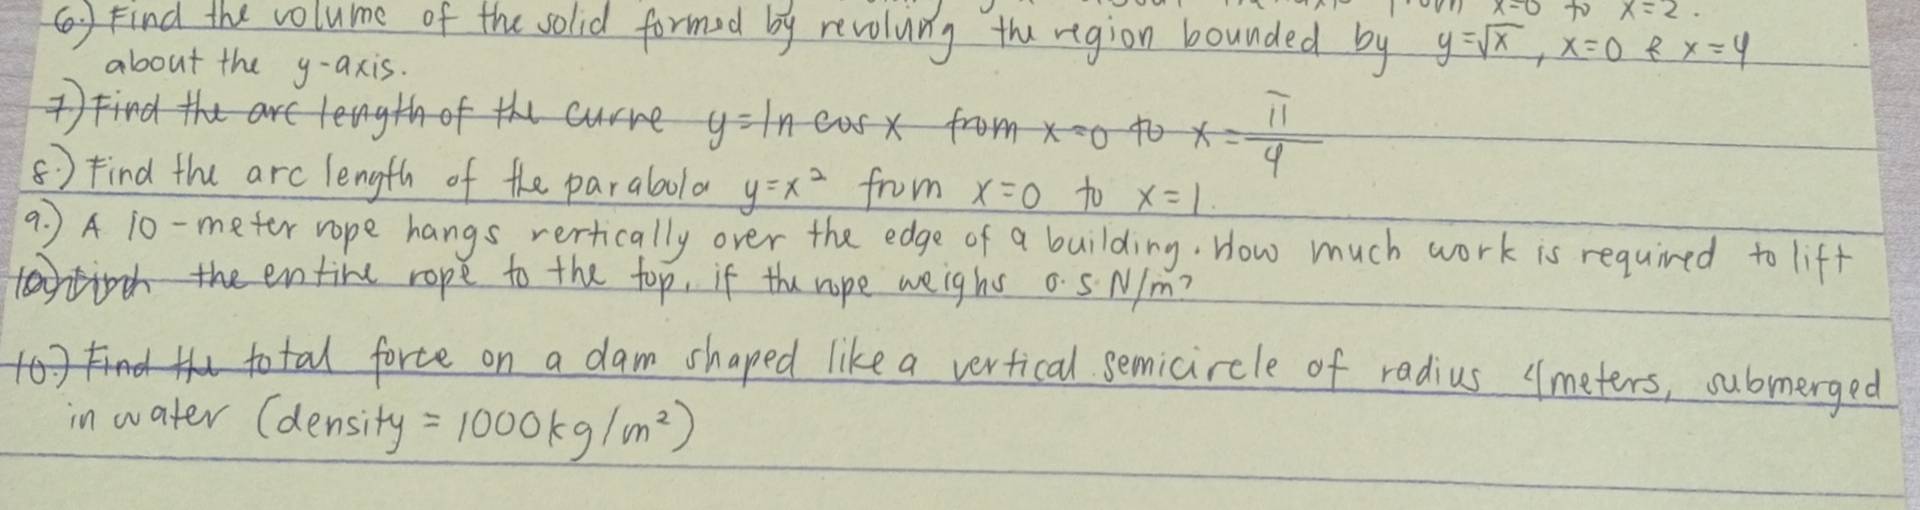 x=0 to x=2.
6.) Find the volume of the solid formed by revolving the region bounded by y=√x, x=0 & x=4
about the y-axis.
7) Find the arc length of the curve y=ln cos x from x=0 to x=π/4
8.) Find the arc length of the parabola y=x² from x=0 to x=1.
9.) A 10-meter rope hangs vertically over the edge of a building. How much work is required to lift
the entire rope to the top, if the rope weighs 0.5 N/m?
10.) Find the total force on a dam shaped like a vertical semicircle of radius 4 meters, submerged
in water (density = 1000kg/m²)